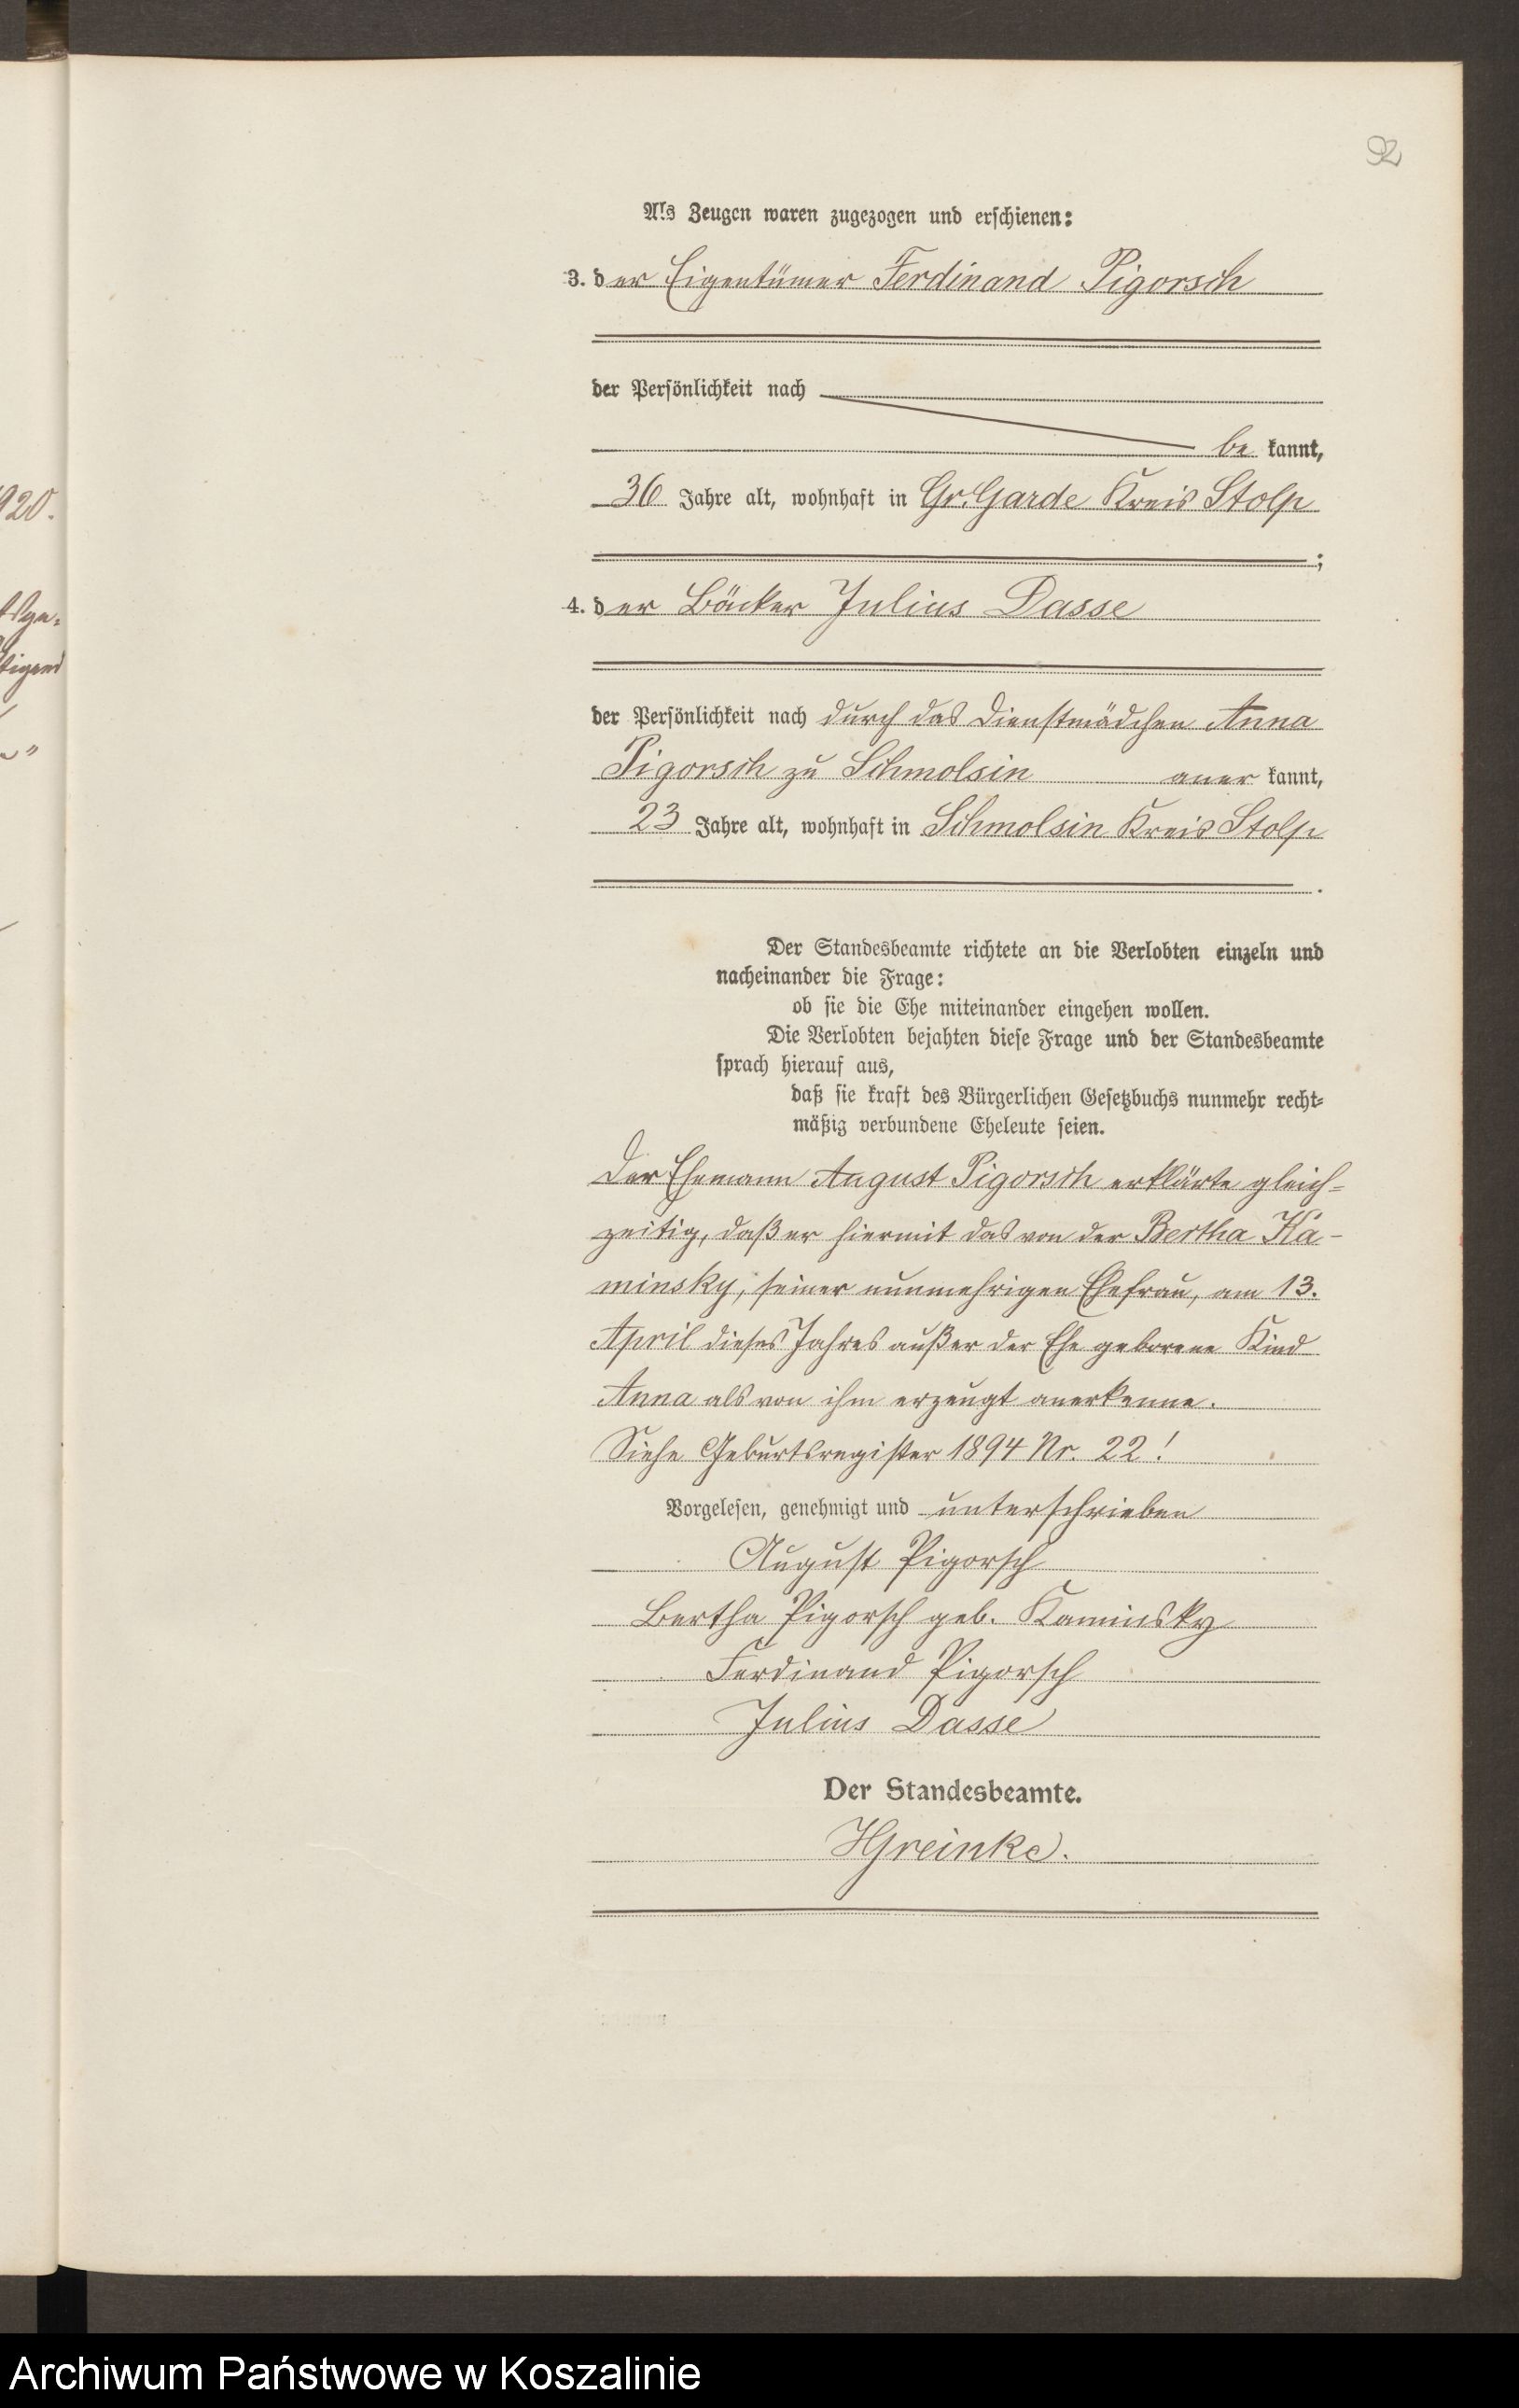 92
Als Zeugen waren zugezogen und erschienen:
3. der Eigentümer Ferdinand Pigorsch
der Persönlichkeit nach
be kannt,
36 Jahre alt, wohnhaft in Gr. Garde Kreis Stolp
;
4. der Bäcker Julius Dasse
der Persönlichkeit nach durch das Dienstmädchen Anna
Pigorsch zu Schmolsin aner kannt,
23 Jahre alt, wohnhaft in Schmolsin Kreis Stolp
.
Der Standesbeamte richtete an die Verlobten einzeln und
nacheinander die Frage:
ob sie die Ehe miteinander eingehen wollen.
Die Verlobten bejahten diese Frage und der Standesbeamte
sprach hierauf aus,
daß sie kraft des Bürgerlichen Gesetzbuchs nunmehr recht-
mäßig verbundene Eheleute seien.
Der Ehemann August Pigorsch erklärte gleich-
zeitig, daß er hiermit das von der Bertha Ka-
minsky, seiner nunmehrigen Ehefrau, am 13.
April dieses Jahres außer der Ehe geborene Kind
Anna als von ihm erzeugt anerkenne.
Siehe Geburtsregister 1894 Nr. 22!
Vorgelesen, genehmigt und unterschrieben
August Pigorsch
Bertha Pigorsch geb. Kaminsky
Ferdinand Pigorsch
Julius Dasse
Der Standesbeamte.
HGreinke.
920.
tigend
Archiwum Państwowe w Koszalinie